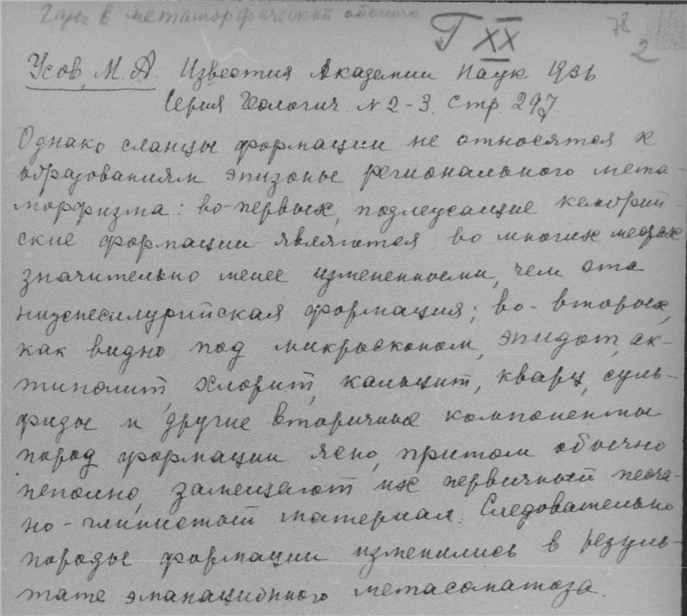 в метаморфической
Г XX
78
2
Усов, М. А. Известия Академии Наук 1936
Серия Геологич. № 2-3. Стр. 297
Однако сланцы формации не относятся к
образованиям эпизоны регионального мета-
морфизма: во-первых, подлежащие кембрий-
ские формации являются во многих местах
значительно менее измененными, чем эта
нижнесилурийская формация; во-вторых,
как видно под микроскопом, эпидот, ак-
тинолит, хлорит, кальцит, кварц, суль-
фиды и другие вторичные компоненты
пород формации ясно, притом обычно
неполно, замещают их первичный песча-
но-глинистый материал. Следовательно
породы формации изменились в резуль-
тате эманационного метасоматоза.